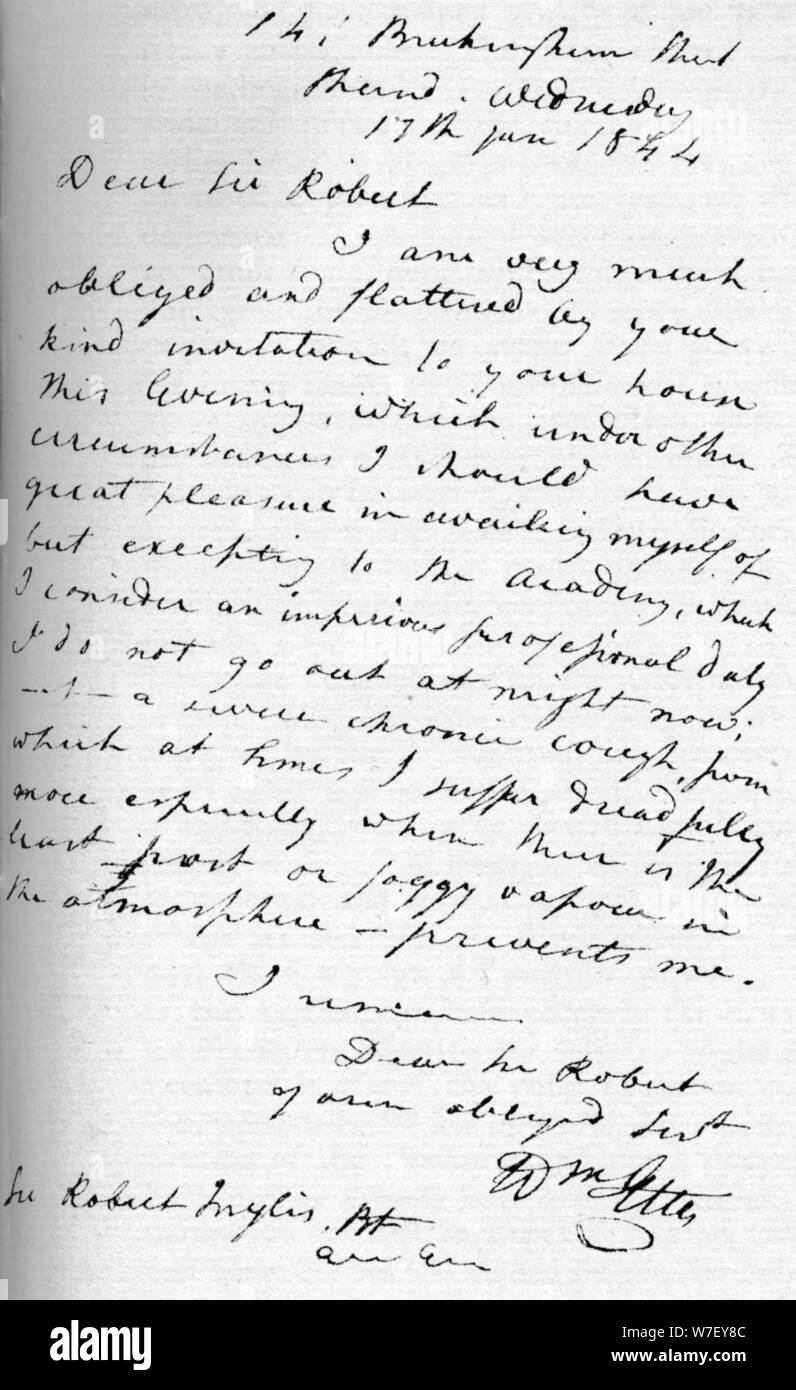 14, Buckingham Street
Strand. Wednesday
17th Jan 1844
Dear Sir Robert
I am very much
obliged and flattered by your
kind invitation to your house
this Evening, which under other
circumstances I should have
great pleasure in availing myself of
but excepting to the Academy, which
I consider an imperious professional duty
I do not go out at night now;
a severe chronic cough, from
which at times I suffer dreadfully
more especially when there is the
least frost or foggy vapour in
the atmosphere – prevents me.
I remain
Dear Sir Robert
your obliged Servt
Wm Etty
Sir Robert Inglis, Bt
a
alamy
Image ID: W7EY8C
www.alamy.com